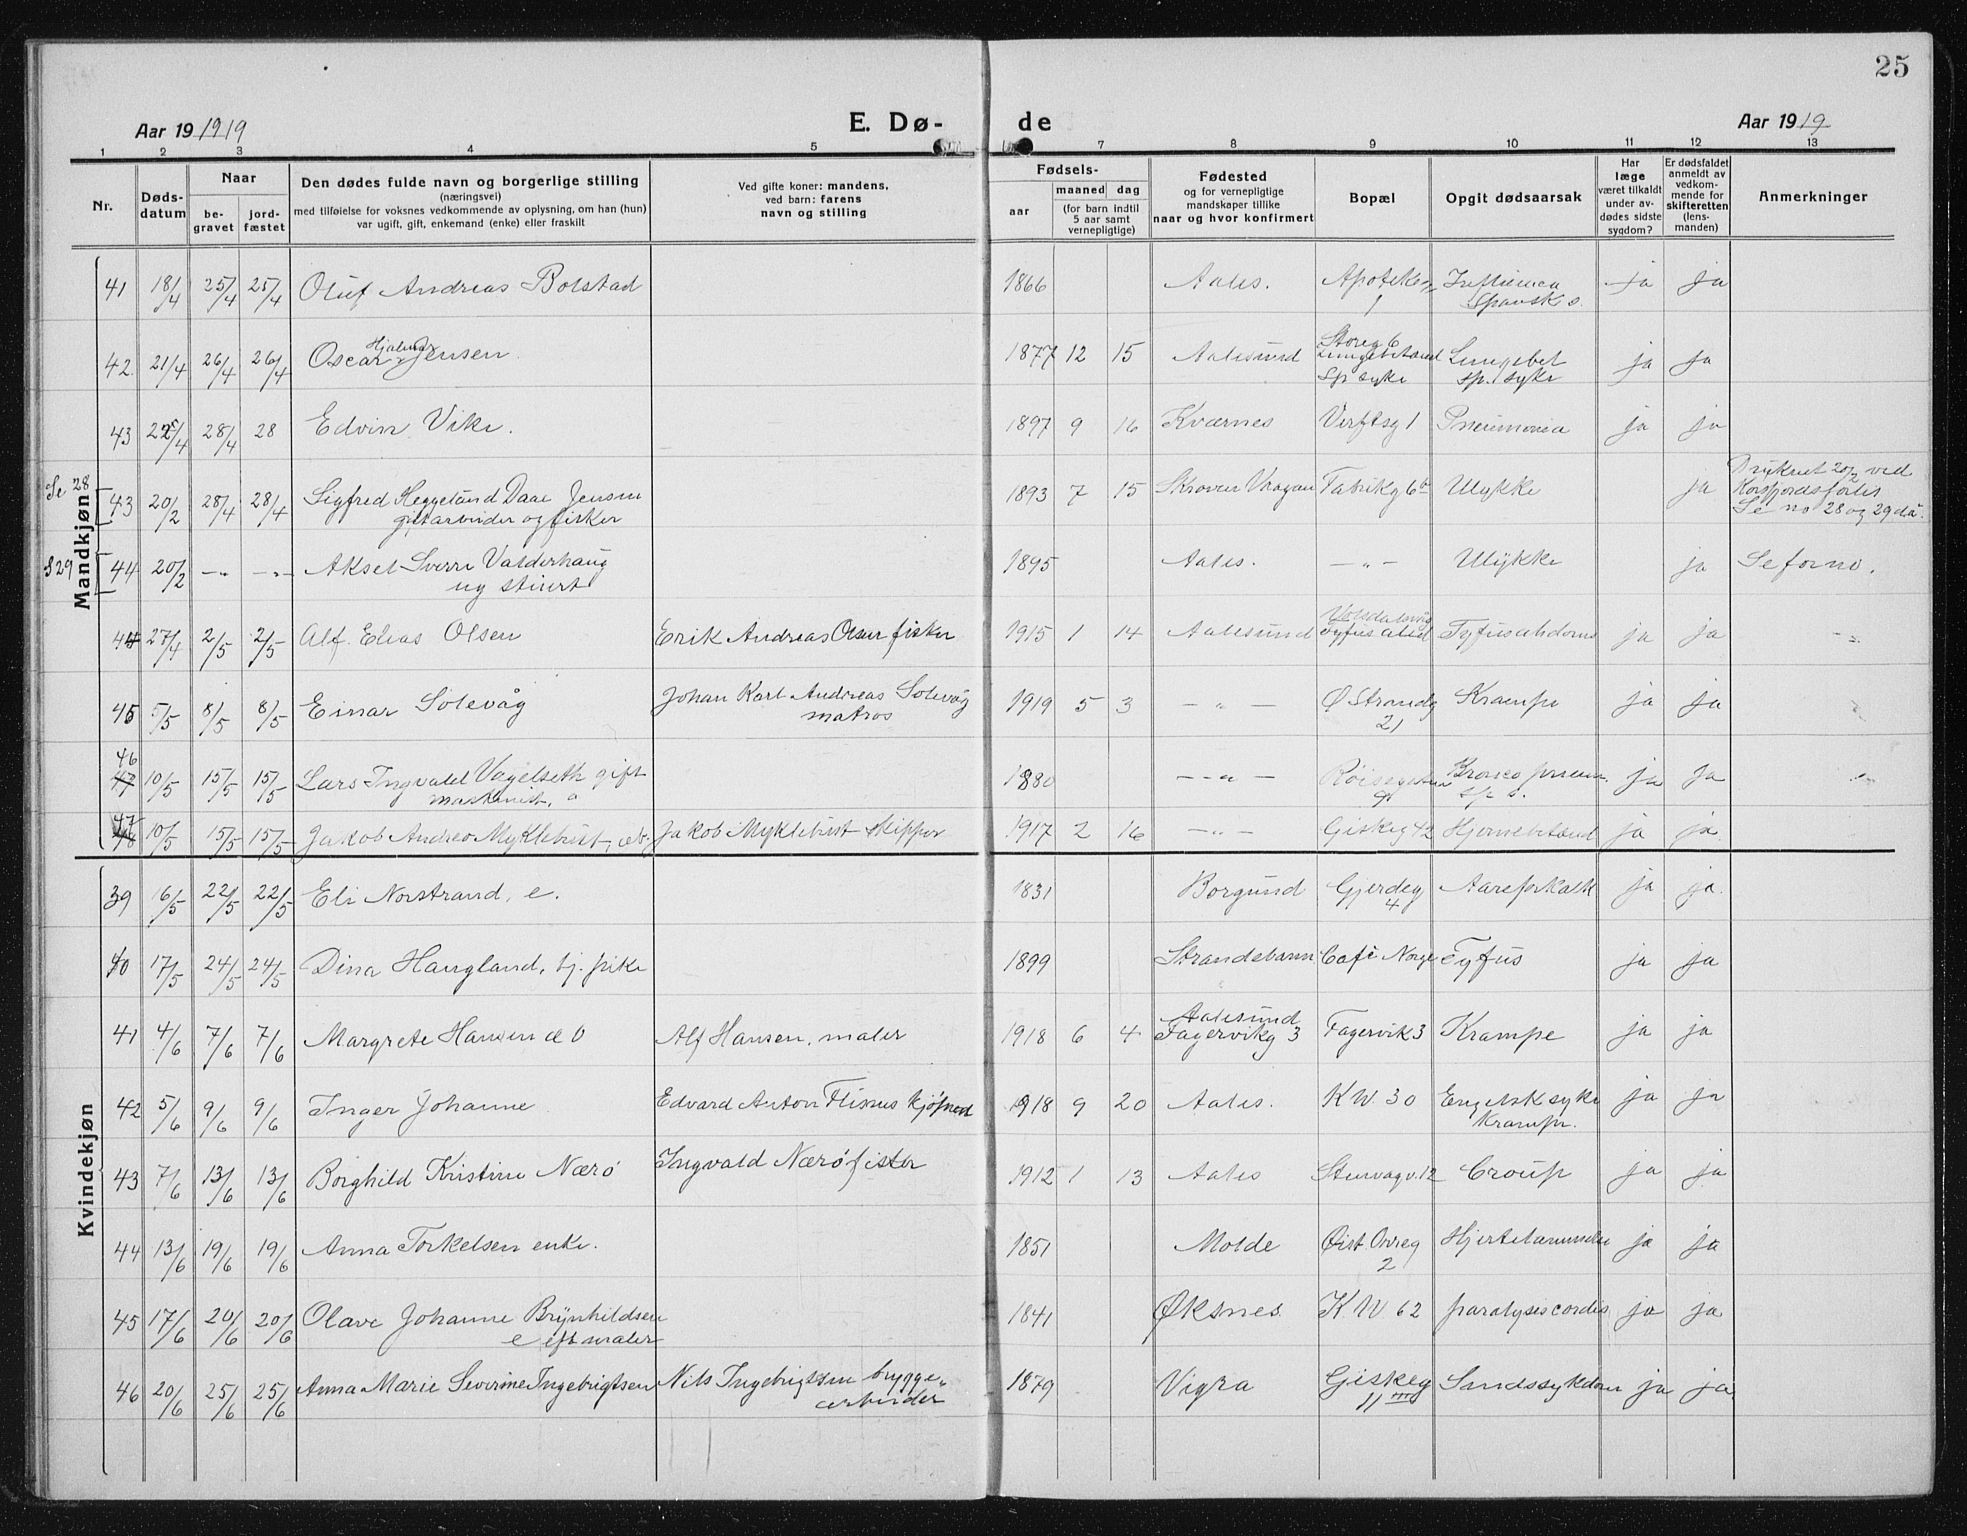 25
Aar 19 1919
E. Dø- de
Aar 1919
1 2 3 4 5 7 8 9 10 11 12 13
Nr.
Døds-
datum
Naar
be-
gravet
jord-
fæstet
Den dødes fulde navn og borgerlige stilling
(næringsvei)
med tilføielse for voksnes vedkommende av oplysning, om han (hun)
var ugift, gift, enkemand (enke) eller fraskilt
Ved gifte koner: mandens,
ved barn: farens
navn og stilling
Fødsels-
aar
maaned dag
(for barn indtil
5 aar samt
vernepligtige)
Fødested
og for vernepligtige
mandskaper tillike
naar og hvor konfirmert
Bopæl
Opgit dødsaarsak
Har
læge
været tilkaldt
under av-
dødes sidste
sygdom?
Er dødsfaldet
anmeldt av
vedkom-
mende for
skifteretten
(lens-
manden)
Anmerkninger
Mandkjøn
41 18/4 25/4 25/4 Oluf Andreas Bolstad 1866 Aales. Apoteker 1 Influenca Spansk s. ja ja
42. 21/4 26/4 26/4 Oscar Hjalmar Jensen. 1877 12 15 Aalesund Storg 6 Lungebetænd Sp syke Lungebet sp. syke ja ja
43 28/4 28 Edvin Vike. 1897 9 16 Kværnes Verftsg 1 Pneumonia ja ja
Se 28 43 20/2 28/4 28/4 Sigfred Heggelund Daae Jensen
fisker 1893 7 15 Skroven Vaagan Fabrikg 6b Ulykke ja Druknet 20/2 ved
Korsfjordsfortet
Se no 28 og 29 da.
S 29 44 20/2 -„- -„- Aksel Sverre Valderhaug
ug stuert 1895 Aales. -„- Ulykke ja Se forno.
44 27/4 2/5 2/5 Alf. Elias Olsen Erik Andreas Olsen fisker 1915 1 14 Aalesund Tyfus abdom ja ja -„-
45 5/5 8/5 8/5 Einar Solevåg Johan Karl Andreas Solevåg
matros 1919 5 3 -„- Ø Strandg
21 Krampe ja ja
46 10/5 15/5 15/5 Lars Ingvald Vagelseth gift
maskinist. 1880 -„- Bronco pneum.
sp s. ja ja
47 10/5 15/5 15/5 Jakob Andreas Myklebust, æb. Jakob Myklebust skipper 1917 2 16 -„- Giskeg 42 Hjernebetænd ja ja
Kvindekjøn
39 16/5 22/5 22/5 Eli Norstrand, e. 1831 Borgund Gjerdeg
4 Aareforkalk ja ja.
40 17/5 24/5 24/5 Dina Haugland, tj. pike 1899 Strandebarm Café Norge Tyfus ja ja
41 4/6 7/6 7/6 Margrete Hansen æ Alf Hansen, maler 1918 6 4 Aalesund
Fagervikg 3 Fagervik 3 Krampe ja ja
42 5/6 9/6 9/6 Inger Johanne Edvard Anton Flisnes kjøpmand 1918 9 20 Aales. K W. 30 Engelsk syke
Krampe. ja ja
43 7/6 13/6 13/6 Borghild Kristine Nærø Ingvald Nærø fisker 1912 1 13 Aales Stenvagv. 12 Croup ja ja
44 13/6 19/6 19/6 Anna Torkelsen enke. 1851 Molde Øist. Ovreg
2 ja ja
45 17/6 20/6 20/6 Olave Johanne Brynhildsen
e eft maler 1841 Øksnes. K W 62 paralysis cordis ja ja
46 20/6 25/6 25/6 Anna Marie Severine Ingebrigtsen Nils Ingebrigtsen brygge-
arbeider 1879 Vigra Giskeg
11 III Sindssykdom ja ja